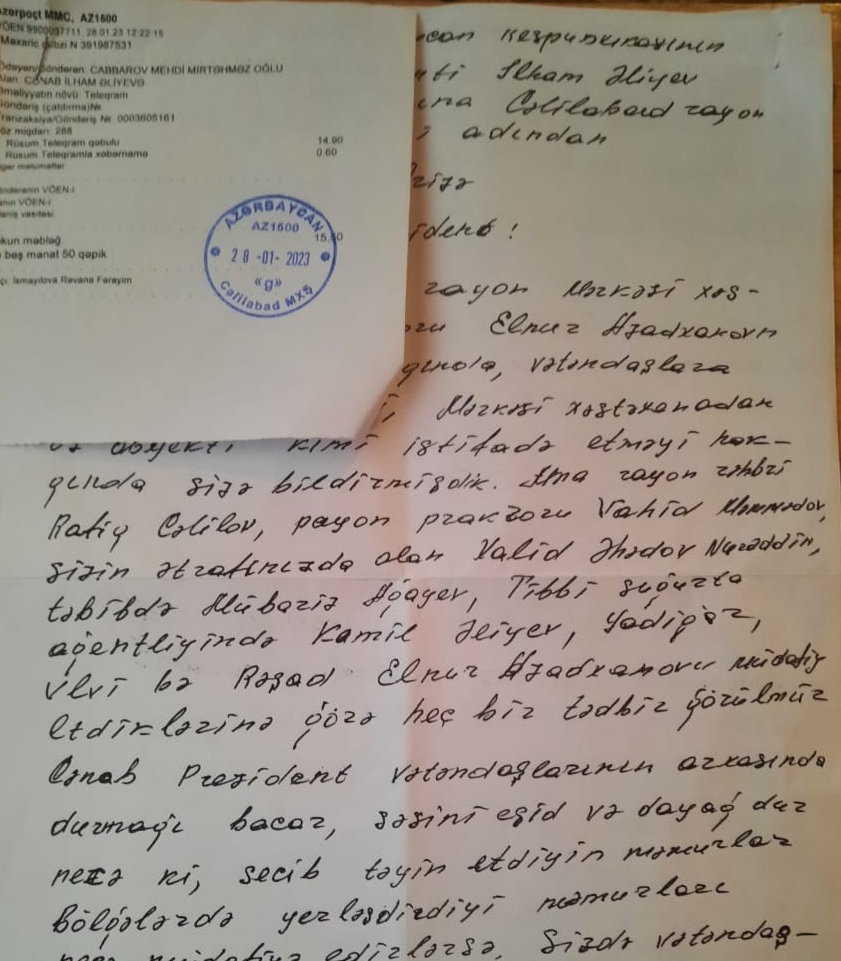 Azərpoçt MMC, AZ1600
VÖEN 9900037711, 28.01.23 12:22:15
Məxaric N 391987531
CABBAROV MEHDİ MİRTƏHMƏZ OĞLU
CƏNAB İLHAM ƏLİYEVƏ
Əməliyyatın növü: Telegram
Göndəriş (çatdırma)№
Tranzaksiya/Göndəriş №: 0003605161
Söz miqdarı: 288
Rüsum.Telegram qəbulu 14.90
Rüsum.Telegramla xəbərnamə 0.60
Digər məlumatlar
VÖEN-i
VÖEN-i
vasitəsi
məbləğ 15.50
beş manat 50 qəpik
İsmayılova Rəvanə
AZƏRBAYCAN
AZ1600
28-01-2023
«g»
Cəlilabad MXŞ
İlham Əliyev
Cəlilabad rayon
adından
rayon Mərkəzi xəs-
Elnur Azadxanovn
vətəndaşlara
Mərkəzi xəstəxanadan
kimi istifadə etməyi haq-
qında sizə bildirmişdik. Ama rayon rəhbri
Rafiq Cəlilov, payon prakroru Vahid Məmmədov,
sizin ətrafınızda olan Valid Əhədov Nurəddin,
təbibdə Mübariz Ağayev, Tibbi sığorta
agentliyində Kamil Əliyev, Yadigar,
Ülvi və Rəşad Elnur Azadxanovu müdafiy
etdiklərinə görə heç bir tədbir görülmür
Cənab Prezident vətəndaşlarının arxasında
durmağı bacar, səsini eşid və dayağ dur
necə ki, secib təyin etdiyin məmurlar
bölgələrdə yerləşdirdiyi məmurları
edirlərsə. Sizdə vətəndaş-